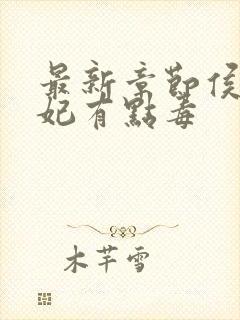 最新章節侯
妃有點毒
木芊雪